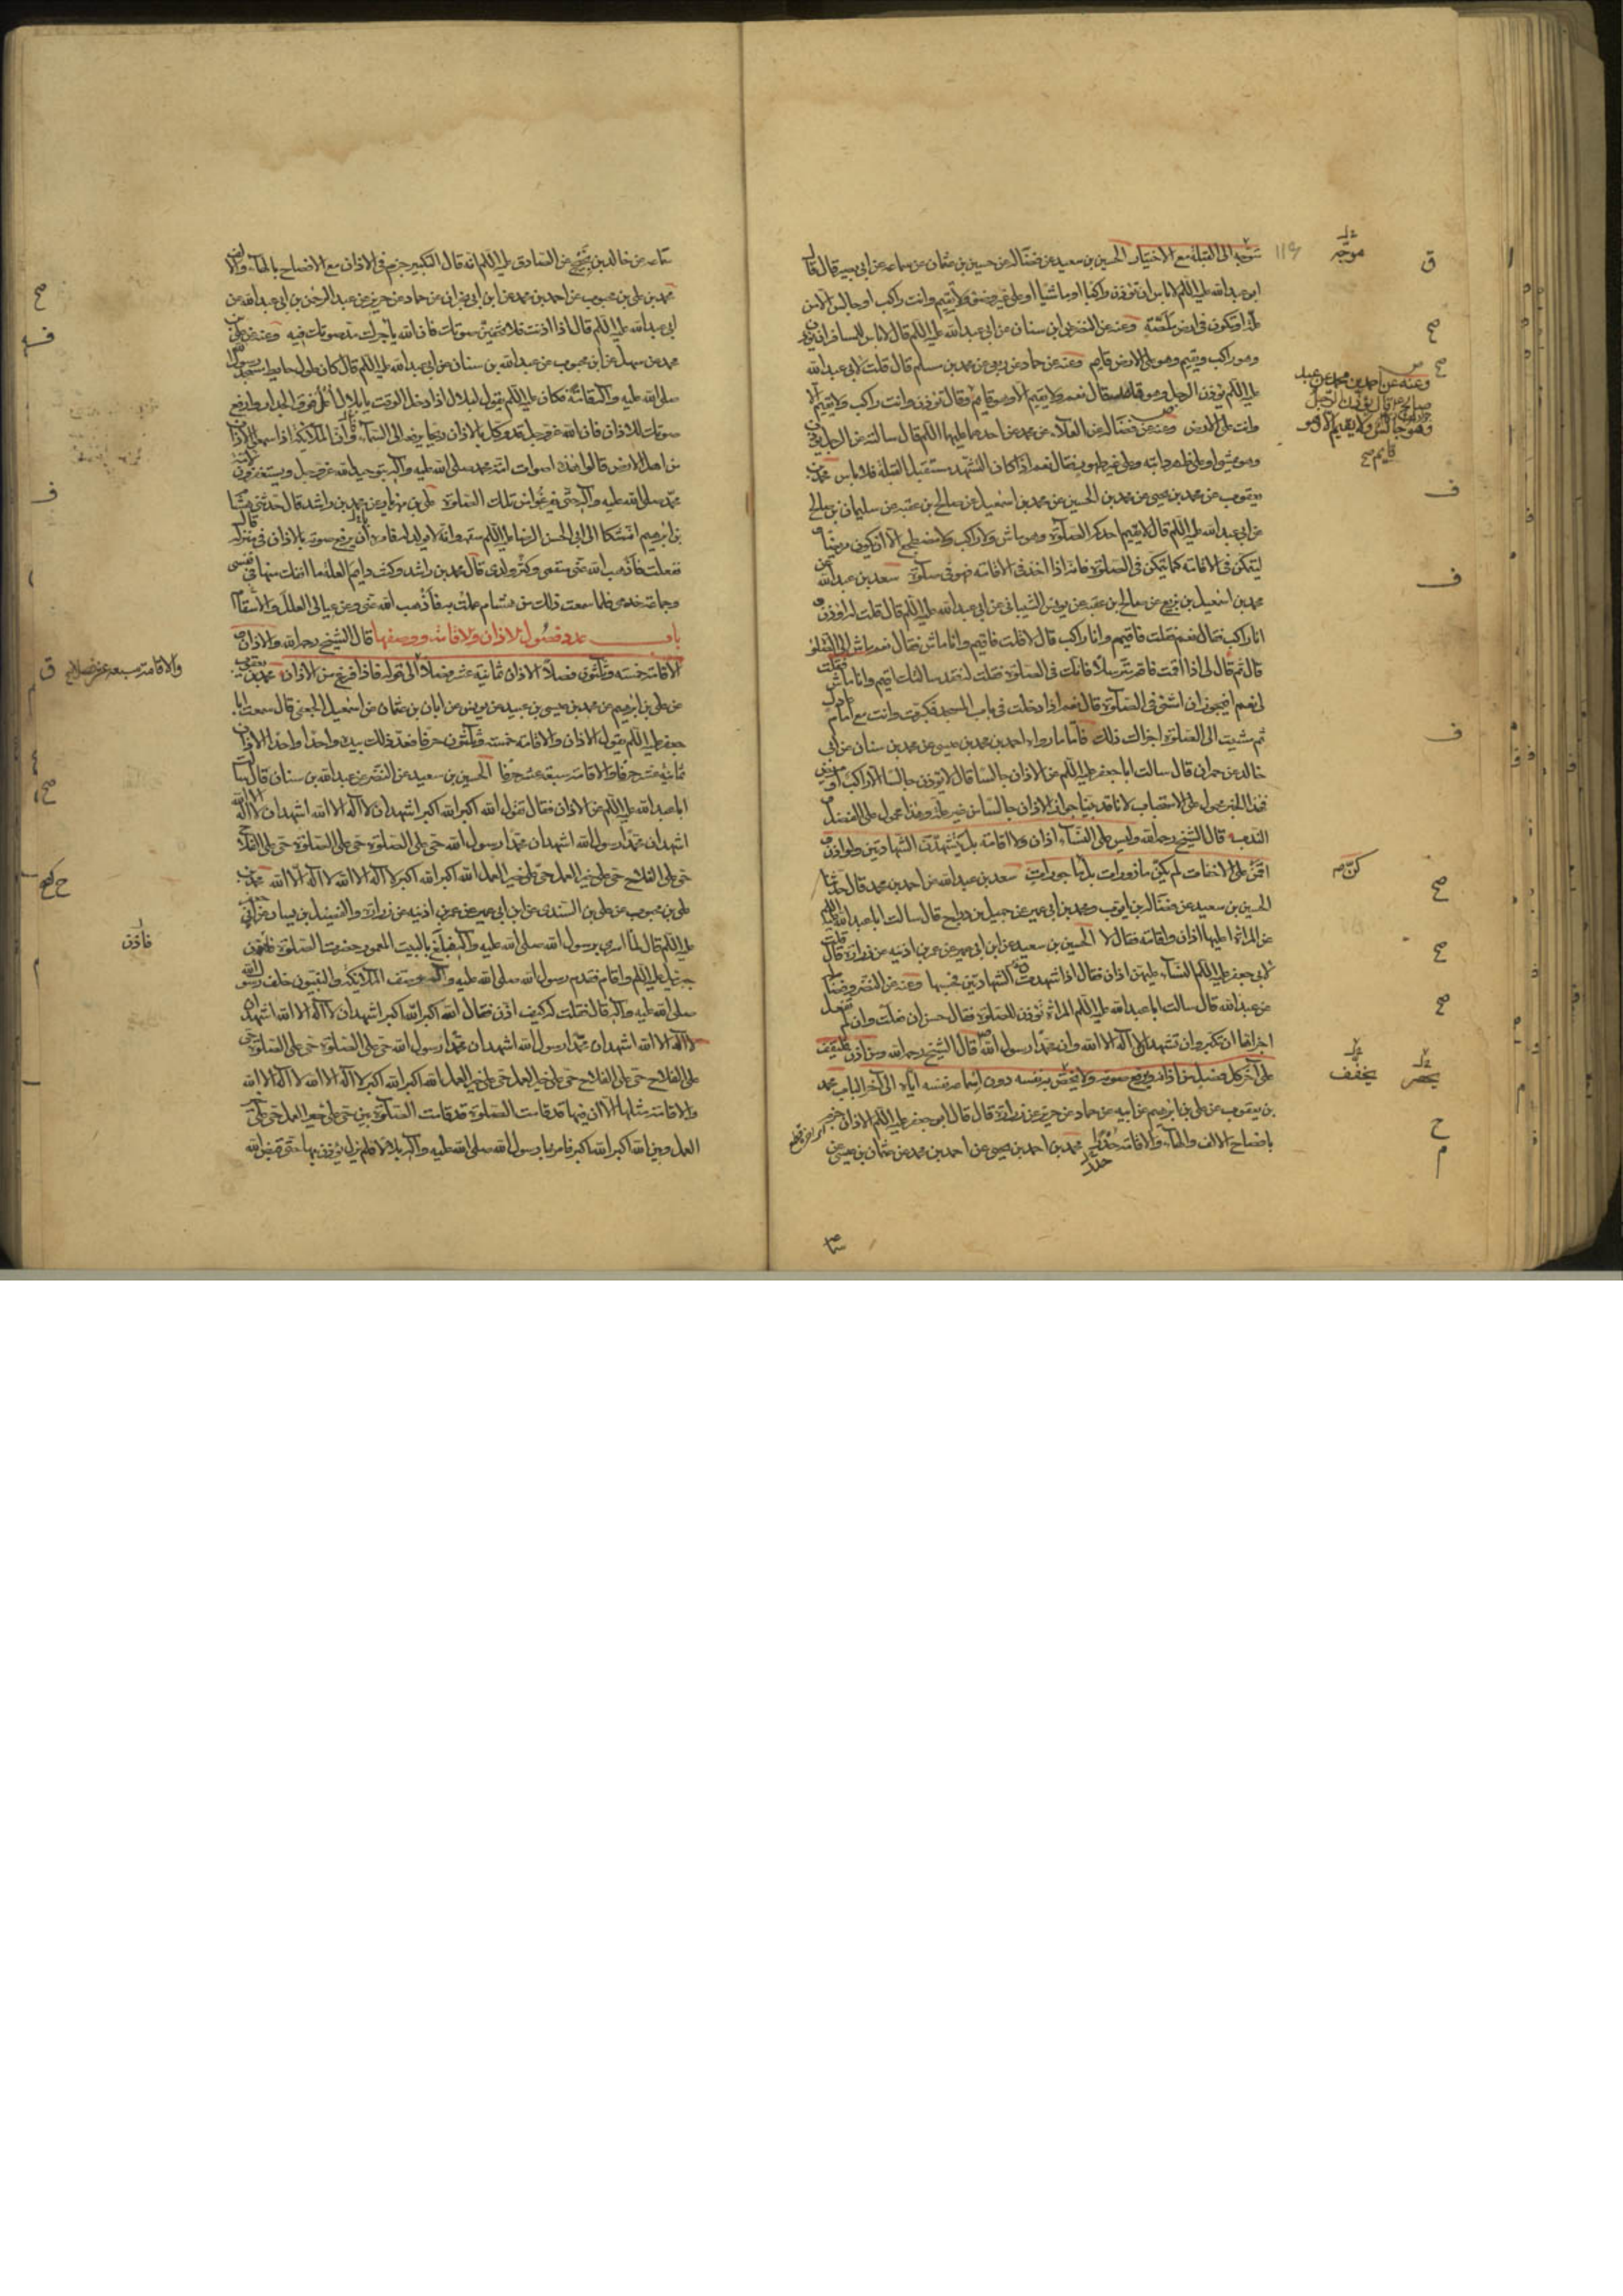 متوجه الى القبلة مع الاختيار الحسين بن سعيد عن فضالة عن حسين بن عثمان عن سماعة عن ابي بصير قال قال
ابو عبد الله عليه السلم لا باس ان تؤذن راكبا او ماشيا او على غير وضوء ولا تقيم وانت راكب او جالس الا من
علة او تكون في ارض ملصة وعنه عن النضر عن ابن سنان عن ابي عبد الله عليه السلم قال لا باس للمسافر ان يؤذن
وهو راكب ويقيم وهو على الارض قايم وعنه عن حماد عن ربعي عن محمد بن مسلم قال قلت لابي عبد الله
عليه السلم يؤذن الرجل وهو قاعد قال نعم ولا يقيم الا وهو قايم وقال تؤذن وانت راكب ولا تقيم الا
وانت على الارض وعنه عن فضالة عن العلاء عن محمد عن احدهما عليهما السلم قال سالته عن الرجل يؤذن
وهو يمشي او على ظهر دابته وعلى غير طهور فقال نعم اذا كان التشهد مستقبل القبلة فلا باس محمد بن
يعقوب عن محمد بن يحيى عن محمد بن الحسين عن محمد بن اسمعيل عن صالح بن عقبة عن سليمان بن صالح
عن ابي عبد الله عليه السلم قال لا يقيم احدكم الصلوة وهو ماش ولا راكب ولا مضطجع الا ان يكون مريضا و
ليتمكن في الاقامة كما يتمكن في الصلوة فانه اذا اخذ في الاقامة فهو في صلوة سعد بن عبد الله عن
محمد بن اسمعيل بن بزيع عن صالح بن عقبة عن يونس الشيباني عن ابي عبد الله عليه السلم قال قلت له اؤذن و
انا راكب فقال نعم فقلت فاقيم وانا راكب قال لا قلت فاقيم وانا ماش فقال نعم ماش الى الصلوة
قال ثم قال لي اذا اقمت فاقم مترسلا فانك في الصلوة فقلت له قد سالتك اقيم وانا ماش فقلت
لي نعم افيجوز ان امشي في الصلوة قال نعم اذا دخلت في باب المسجد فكبرت وانت مع امام عادل
ثم مشيت الى الصلوة اجزاك ذلك فاما ما رواه احمد بن محمد بن عيسى عن محمد بن سنان عن ابي
خالد عن حمران قال سالت ابا جعفر عليه السلم عن الاذان جالسا قال لا يؤذن جالسا الا راكب او مريض
فهذا الخبر محمول على الاستحباب لانا قد بينا جواز الاذان جالسا من غير علة وهذا محمول على الفضل
الندب قال الشيخ رحمه الله وليس على النساء اذان ولا اقامة بل يتشهدن الشهادتين ولو اذن و
اقمن على الاخفات لم يكن مازورات بل ماجورات سعد بن عبد الله عن احمد بن محمد قال حدثنا
الحسين بن سعيد عن فضالة بن ايوب ومحمد بن ابي عمير عن جميل بن دراج قال سالت ابا عبد الله عليه السلم
عن المراة اعليها اذان واقامة فقال لا الحسين بن سعيد عن ابن ابي عمير عن عمر بن اذينه عن زرارة قال قلت
لابي جعفر عليه السلم النساء عليهن اذان فقال اذا شهدت الشهادتين فحسبها وعنه عن النضر وفضالة
عن عبد الله قال سالت ابا عبد الله عليه السلم المراة تؤذن للصلوة فقال حسن ان فعلت وان لم تفعل
اجزاها ان تكبر وان تشهد ان لا اله الا الله وان محمدا رسول الله قال الشيخ رحمه الله ومن اذن فليقف
على آخر كل فصل من اذانه ويرفع صوته ولا يخفض به نفسه دون اسماعه نفسه اياه الى آخر الباب محمد
بن يعقوب عن علي بن ابرهيم عن ابيه عن حماد عن حريز عن زرارة قال قال ابو جعفر عليه السلم الاذان جزم
بافصاح الالف والهاء والاقامة حدر محمد بن احمد بن يحيى عن احمد بن محمد عن عثمان بن عيسى عن
موجه
١١٤
وعنه عن احمد بن محمد عن عبد
صالح قال يؤذن الرجل
وهو جالس ولا يقيم الا وهو
قايم صح
يخفف
حدر
خالد بن نجيح عن الصادق عليه السلم انه قال التكبير جزم في الاذان مع الافصاح بالهاء والالف
محمد بن علي بن محبوب عن احمد بن محمد عن ابن ابي نجران عن حماد عن حريز عن عبد الرحمن بن ابي عبد الله عن
ابي عبد الله عليه السلم قال اذا اذنت فلا تخفين صوتك فان الله ياجرك مد صوتك فيه وعنه عن علي بن
محمد عن سهل عن ابن محبوب عن عبد الله بن سنان عن ابي عبد الله عليه السلم قال كان طول حايط مسجد رسول الله
صلى الله عليه وآله قامة فكان عليه السلم يقول لبلال اذا دخل الوقت يا بلال اعل فوق الجدار وارفع
صوتك بالاذان فان الله عز وجل قد وكل بالاذان ريحا يرفعه الى السماء وان الملائكة اذا سمعوا الاذان
من اهل الارض قالوا هذه اصوات امة محمد صلى الله عليه وآله بتوحيد الله عز وجل ويستغفرون لامة
محمد صلى الله عليه وآله حتى يفرغوا من تلك الصلوة علي بن مهزيار عن محمد بن راشد قال حدثني هشام
بن ابرهيم انه شكا الى ابي الحسن الرضا عليه السلم سقمه وانه لا يولد له فامره ان يرفع صوته بالاذان في منزله قال
ففعلت فاذهب الله عني سقمي وكثر ولدي قال محمد بن راشد وكنت دايم العلة ما انفك منها في نفسي
وجماعة خدمي فلما سمعت ذلك من هشام عملت به فاذهب الله عني وعن عيالي العلل والاسقام
باب عدد فصول الاذان والاقامة ووصفها قال الشيخ رحمه الله والاذان و
الاقامة خمسة وثلثون فصلا الاذان ثمانية عشر فصلا الى قوله فاذا فرغ من الاذان محمد بن يعقوب
عن علي بن ابرهيم عن محمد بن عيسى بن عبيد عن يونس عن ابان بن عثمان عن اسمعيل الجعفي قال سمعت ابا
جعفر عليه السلم يقول الاذان والاقامة خمسة وثلثون حرفا فعد ذلك بيده واحدا واحدا الاذان
ثمانية عشر حرفا والاقامة سبعة عشر حرفا الحسين بن سعيد عن النضر عن عبد الله بن سنان قال سالت
ابا عبد الله عليه السلم عن الاذان فقال تقول الله اكبر الله اكبر اشهد ان لا اله الا الله اشهد ان لا اله الا الله
اشهد ان محمدا رسول الله اشهد ان محمدا رسول الله حي على الصلوة حي على الصلوة حي على الفلاح
حي على الفلاح حي على خير العمل حي على خير العمل الله اكبر الله اكبر لا اله الا الله لا اله الا الله محمد بن
علي بن محبوب عن علي بن السندي عن ابن ابي عمير عن عمر بن اذينه عن زرارة والفضيل بن يسار عن ابي جعفر
عليه السلم قال لما اسري برسول الله صلى الله عليه وآله فبلغ البيت المعمور حضرت الصلوة فاذن
جبرئيل عليه السلم واقام فتقدم رسول الله صلى الله عليه وآله وصف الملائكة والنبيون خلف رسول الله
صلى الله عليه وآله قال فقلت له كيف اذن فقال الله اكبر الله اكبر اشهد ان لا اله الا الله اشهد ان
لا اله الا الله اشهد ان محمدا رسول الله اشهد ان محمدا رسول الله حي على الصلوة حي على الصلوة حي
على الفلاح حي على الفلاح حي على خير العمل حي على خير العمل الله اكبر الله اكبر لا اله الا الله لا اله الا الله
والاقامة مثلها الا ان فيها قد قامت الصلوة قد قامت الصلوة بين حي على خير العمل حي على خير
العمل وبين الله اكبر الله اكبر فامر بها رسول الله صلى الله عليه وآله بلالا فلم يزل يؤذن بها حتى قبض الله
والاقامة سبعة عشر فصلا
فاذن